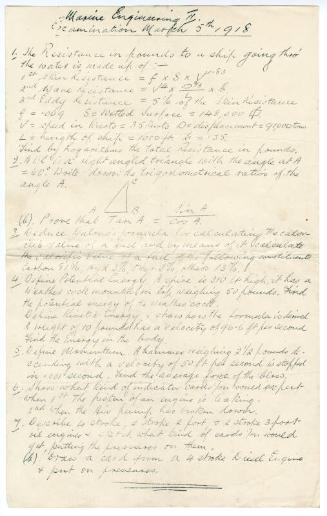 Marine Engineering II
Examination March 5th 1918
1. The Resistance in pounds to a ship going thro'
the water is made up of :-
1st Skin Resistance = f x S x V 1.83
2nd Wave Resistance
3rd Eddy Resistance = 5% of the Skin Resistance
f = .009 S = Wetted Surface = 148,000
V = speed in knots = 35 knots D = displacement =
L = length of ship = 1000 ft
Find by logarithms the total Resistance in pounds.
2. ABC is a right angled triangle with the angle at A
= 60° Write down the trigonometrical ratios of the
angle A.
A B C
(b). Prove that Tan A = Sin A / Cos A.
3. Deduce formula for calculating the calor-
ific value of a fuel and by means of it calculate
the calorific value of a fuel of the following constituents
Carbon
4. Define Potential Energy. A spire is 310 ft high, it has a
Weather cock mounted on top weighing 50 pounds. Find
the potential energy of the Weather cock.
Define Kinetic Energy, & show how the formula is derived
A weight of 10 pounds has a velocity of 40 ft per second
Find the Energy in the body.
5. Define Momentum. A hammer weighing 2 1/2 pounds de-
scending with a velocity of 50 ft per second is stopped
in second. Find the average force of the blow.
6. Show what kind of indicator cards you would expect
when 1st The piston of an engine is leaking.
2nd when the Air pump has broken down.
7. Describe 4 stroke, 2 stroke 2 port & 2 stroke 3 port
oil engines & sketch what kind of cards you would
get, putting the pressures on them.
(b) Draw a card from a 4 stroke Diesel Engine
& put on pressures.